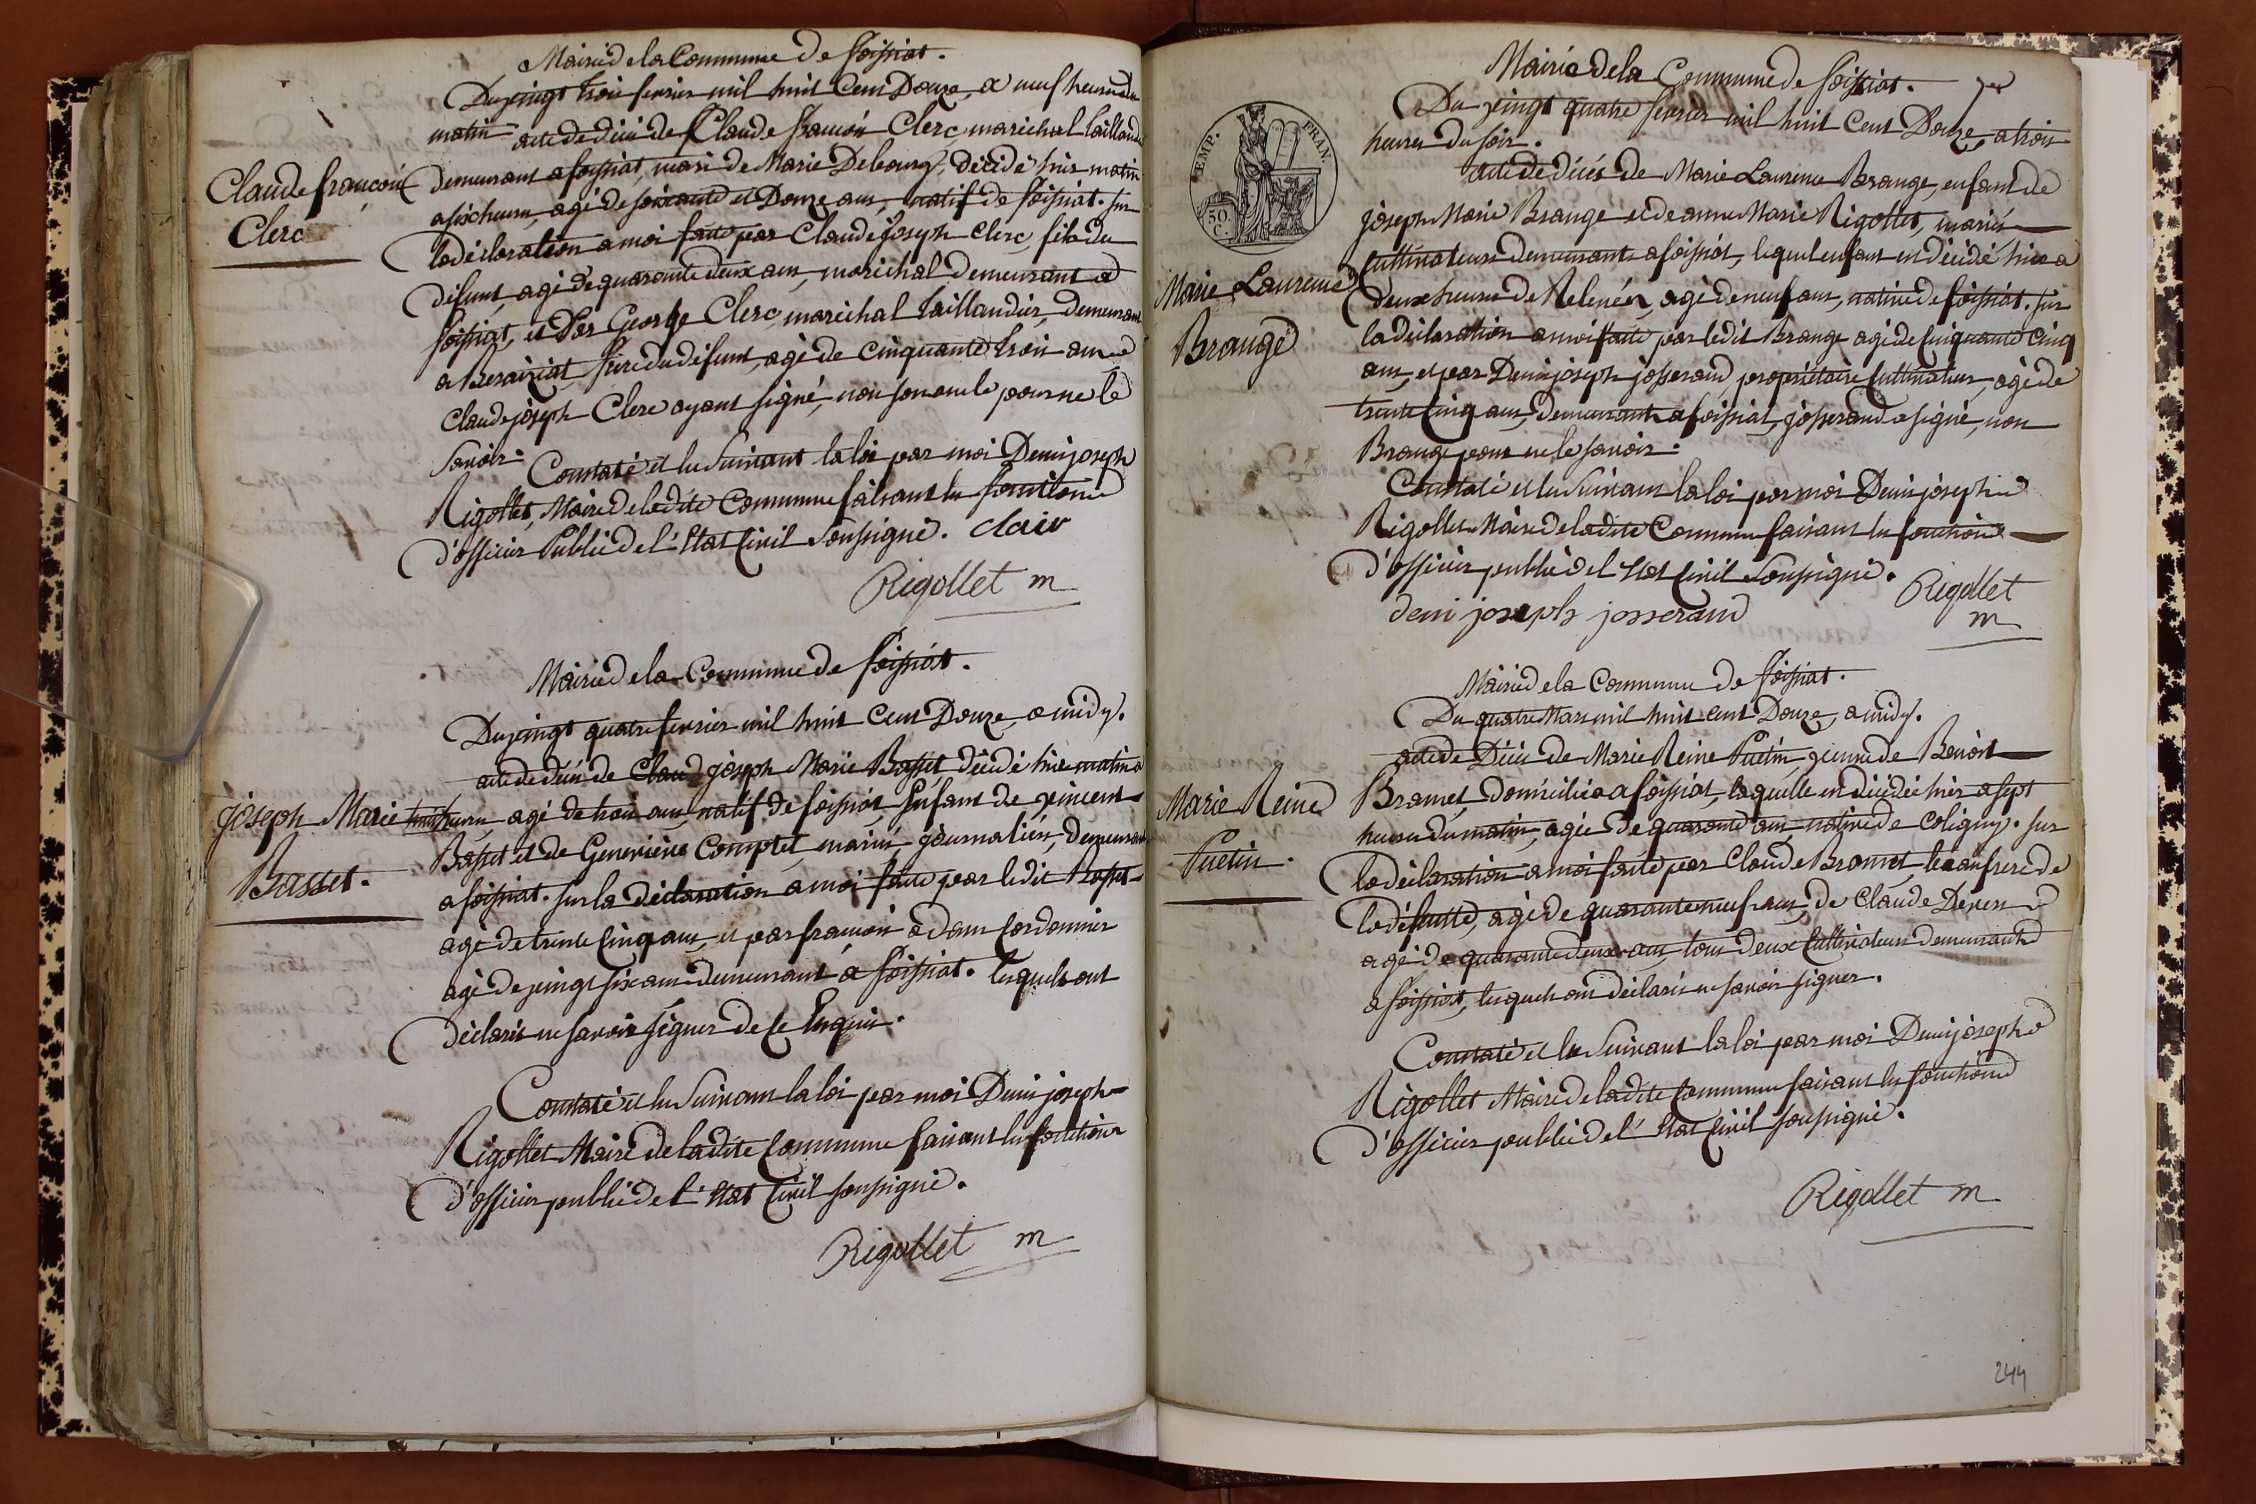 Mairie de la Commune de foissiat.
Du vingt trois fevrier mil huit Cent Douze, a neuf heures du
matin acte de décés de Claude françois Clerc marechal taillandier
Claude françois
Clerc
demeurant a foissiat, mari de Marie Debourg, décédé hier matin
a six heures, agé de soixante et Douze ans, natif de foissiat. sur
la déclaration a moi faite par Claude Joseph Clerc, fils du
défunt, agé de quarante deux ans, maréchal demeurant a
foissiat, et Par George Clerc, maréchal taillandier, demeurant
a Bereiziat, frere du défunt, agé de cinquante trois ans
Claude joseph Clerc ayant signé, non son oncle pour ne le
savoir.
Constaté et lu Suivant la loi par moi Denis joseph
Rigollet, Maire de ladite Commune faisant les fonctions
d'officier Public de l'Etat Civil Soussigné. clair
Rigollet m
Mairie de la Commune de foissiat.
Du vingt quatre fevrier mil huit Cent Douze, a midy.
acte de décés de Claud joseph Marie Basset décédé hier matin a
Joseph Marie
Basset.
huit heures, agé de trois ans, natif de foissiat, Enfant de vincent
Basset et de Genevieve Comptet, mariés journaliers, demeurant
a foissiat. sur la déclaration a moi faite par ledit Basset
agé de trente Cinq ans, et par françois adam Cordonnier
agé de vingt six ans demeurant a foissiat. lesquels ont
déclaré ne savoir signer de ce Enquis.
Constaté et lu Suivant la loi par moi Denis joseph
Rigollet Maire de ladite Commune faisant les fonctions
d'officier public de l'Etat Civil soussigné.
Rigollet m
Mairie de la Commune de foissiat.
Du vingt quatre fevrier mil huit Cent Douze, a trois
heures du soir.
TEMP. FRAN.
50.
C.
acte de décés de Marie Laurence Brange, enfant de
joseph Marie Brange et de anne Marie Rigollet, mariés
Cultivateurs demeurants a foissiat, lequel enfant est décédé hier a
Marie Laurence
Brange
deux heures de Relevée, agé de neuf ans, native de foissiat. sur
la déclaration a moi faite par ledit Brange agé de Cinquante Cinq
ans, et par Denis joseph josserand, propriétaire Cultivateur, agé de
trente Cinq ans, Demeurant a foissiat, josserand a signé, non
Brange pour ne le savoir.
Constaté et lu Suivant la loi par moi Denis joseph
Rigollet Maire de ladite Commune faisant les fonctions
d'officier public de l'Etat Civil Soussigné.
Rigollet
m
deni joseph josserand
Mairie de la Commune de foissiat.
Du quatre Mars mil huit cent Douze, a midy.
acte de Décés de Marie Reine Putin, veuve de Benoit
Marie Reine
Putin.
Bramet, domiciliée a foissiat, laquelle est décédée hier a sept
heures du matin, agée de quarante ans native de coligny. sur
la déclaration a moi faite par Claude Bramet, beau frere de
la défunte, agé de quarante neuf ans, de Claude
agé de quarante deux ans tous deux Cultivateurs demeurants
a foissiat, lesquels ont déclaré ne savoir signer.
Constaté et lu Suivant la loi par moi Denis joseph
Rigollet Maire de ladite Commune faisant les fonctions
d'officier public de l'Etat Civil soussigné.
Rigollet m
244